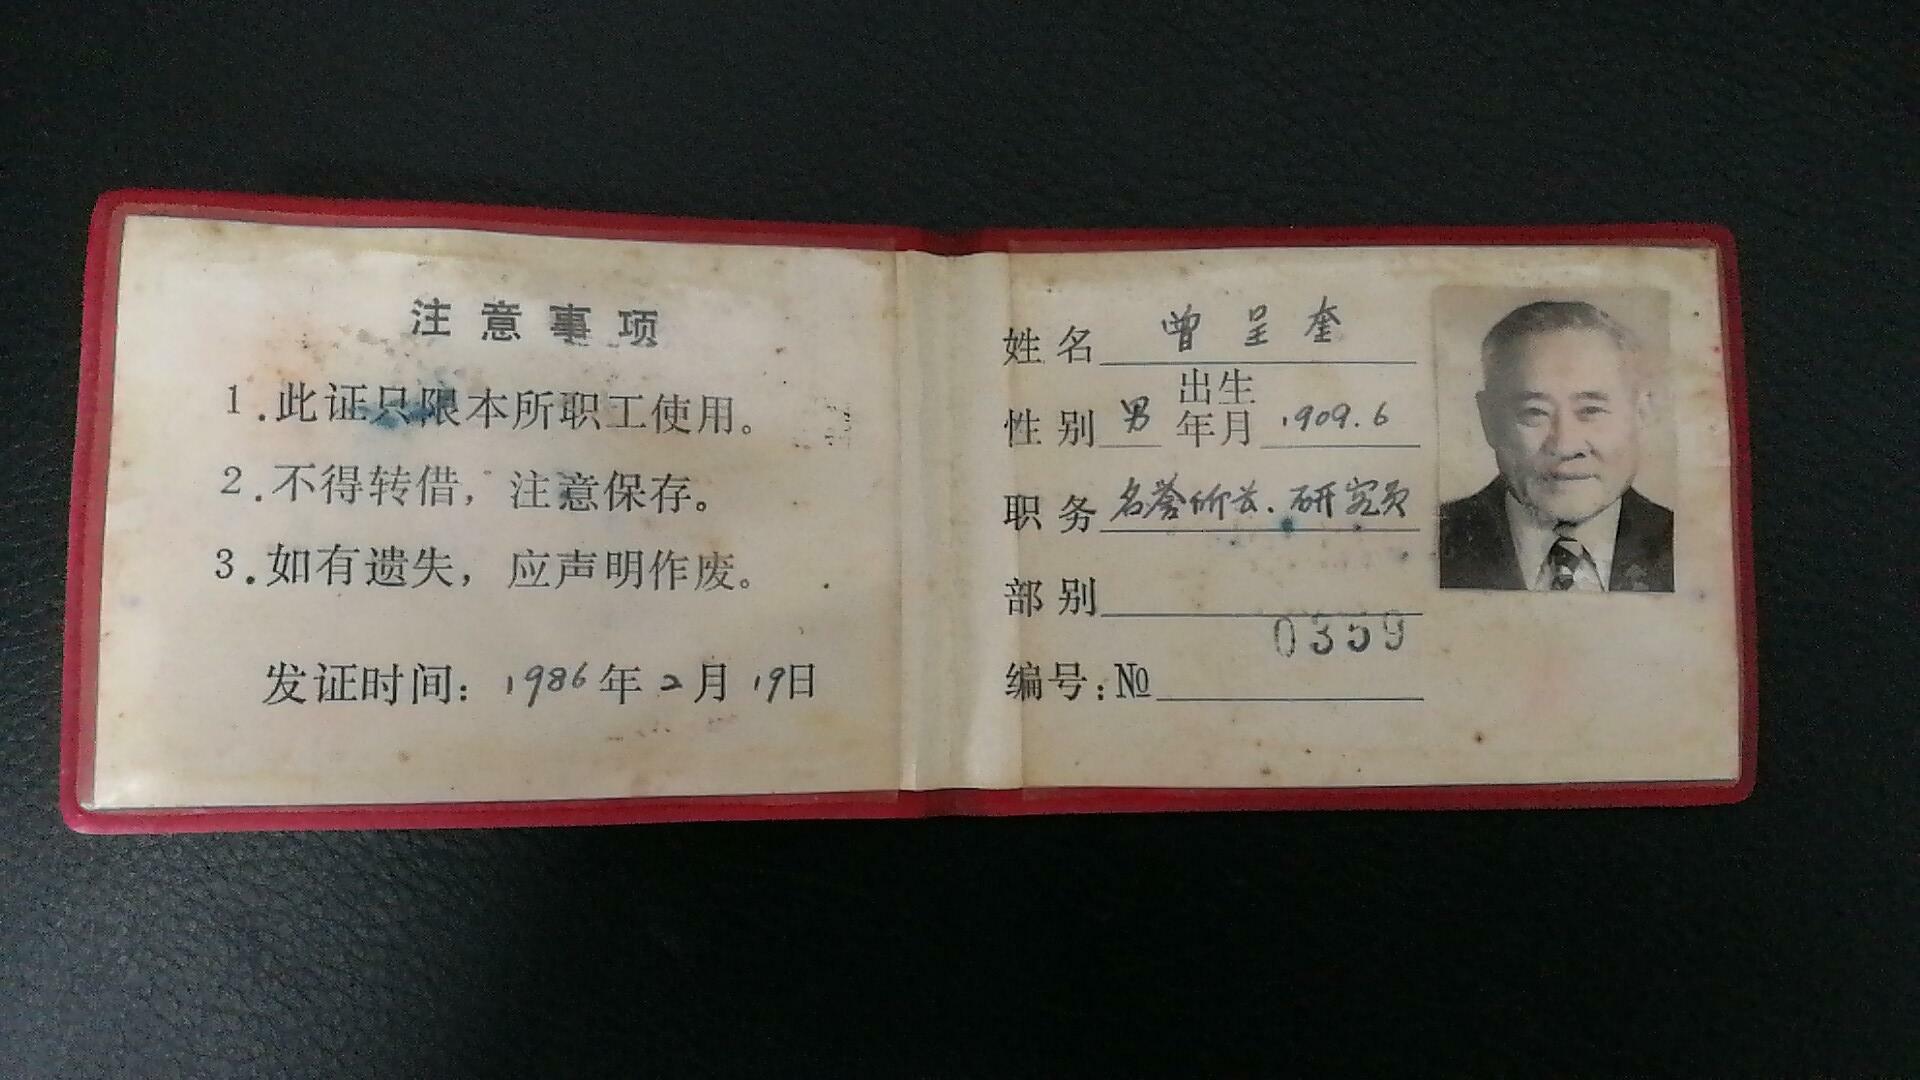 注意事项
1.此证只限本所职工使用。
2.不得转借，注意保存。
3.如有遗失，应声明作废。
发证时间：1986年2月19日
姓名 曾呈奎
性别 男 出生年月 1909.6
职务 名誉所长.研究员
部别
0359
编号：№